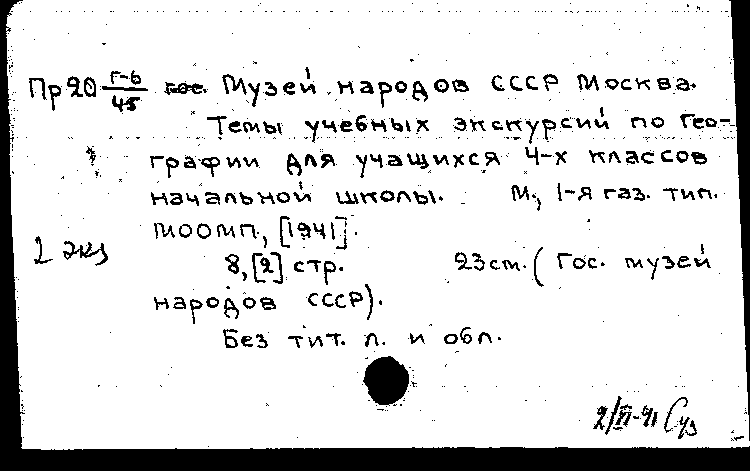 Пр20 Г-6/45 гос. Музей народов СССР Москва.
Темы учебных экскурсий по гео-
графии для учащихся 4-х классов
начальной школы. М., 1-я газ. тип.
МООМП, [1941].
2 экз
8, [2] стр. 23 см. (Гос. музей
народов СССР).
Без тит. л. и обл.